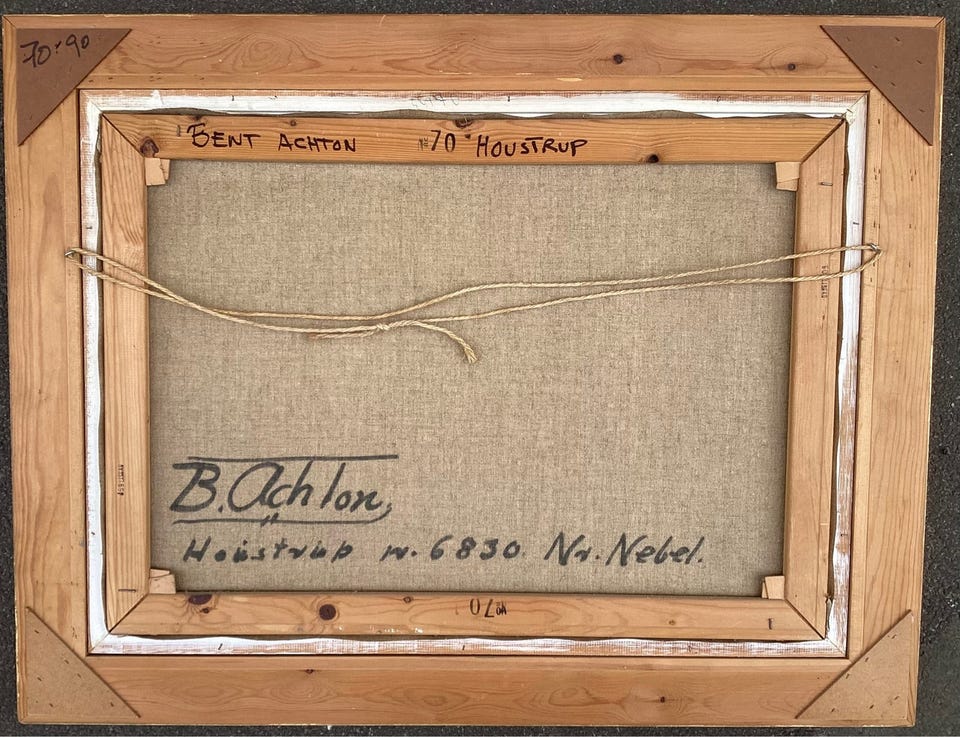 70·90
BENT ACHTON 70 HOUSTRUP
B. Achton,
Houstrup n. 6830 Nr. Nebel.
70